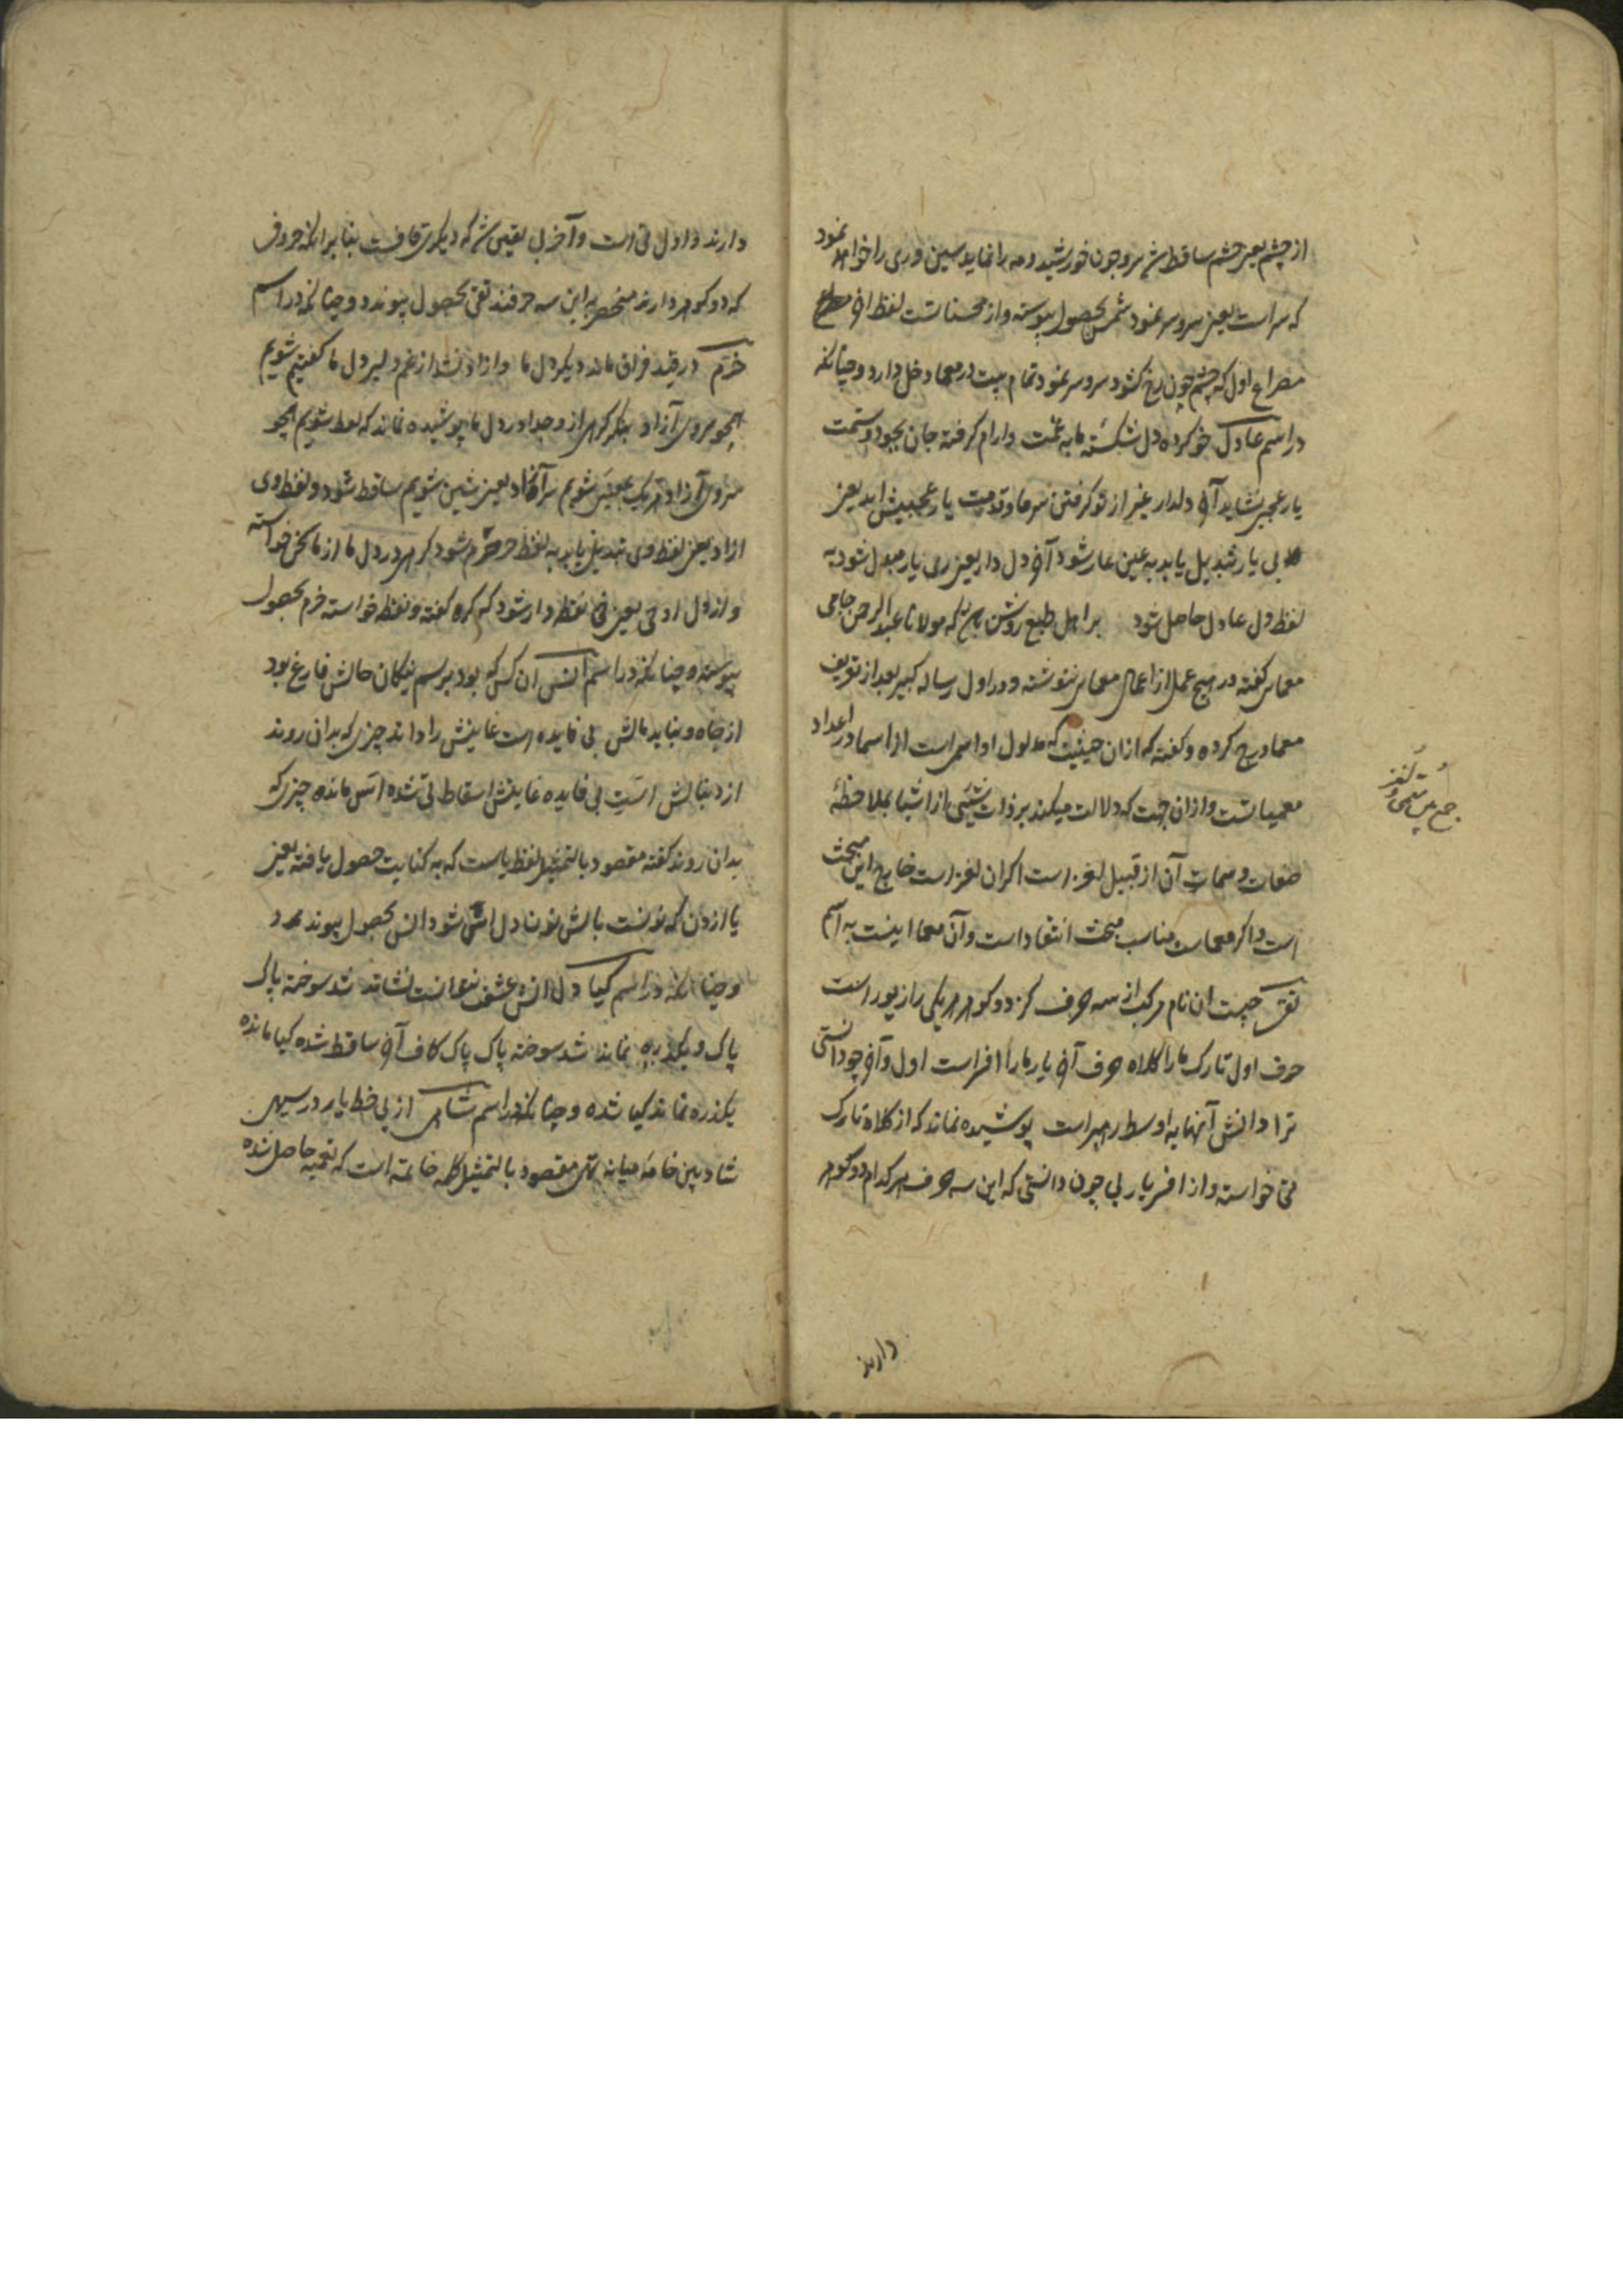 از چشم یعنی چشم ساقط شد سر و چون خورشید و مه را نماید سین وری را خواهد نمود
که سر است یعنی سر و سر نمود شمس بحصول پیوسته و از محسنا تست لفظ آخر
مصراع اول که چشم چون رخ کشود سر و سر نمود تمام بیت در معما دخل دارد و چنانکه
در اسم عادل خو کرده دل شکسته ما به غمت و ارام کرفته جان
یار عجبی شاید آخر دلدار غیر از تو کرفتن سر ما و قدمت یار عجبیش اید یعنی
بی یار تبدیل یابد به عین عار شود آخر دل دار یعنی ری یار مبدل شود به
لفظ دل عادل حاصل شود بر اهل طبع روشن که مولانا عبد الرحمن جامی
معمای کفته در هیچ عمل از اعمال معمایی ننوشته و در اول رساله کبیر بعد از تعریف
معما درج کرده و کفته که ازان حیثیت که مدلول او اسمی است از اسما در اعداد
معمیا تست و ازان جهت که دلالت میکند بر ذات شیئی از اشیا بملاحظهٔ
صفات و سمات آن از قبیل لغز است اکر ان لغز است خارج این مبحث
است و اکر معماست مناسب مبحث انتقاد است و آن معما اینست به اسم
تقی چیست ان نام مرکب از سه حرف کز دو کوهر هر یکی را زیور است
حرف اول تارک ما را کلاه حرف آخر یار ما را افسر است اول و آخر چو دانستی
ترا دانش آنها به اوسط رهبر است پوشیده نماند که از کلاه تارک
تی خواسته و از افسر یار بی چون دانستی که این سه حرف هر کدام دو کوهر
جمع میان معمی و لغز
دارند
دارند و اول تی است و آخر بی یقین شد که دیکری قافست بنا برانکه حروف
که دو کوهر دارند منحصر به این سه حرفند تقی بحصول پیوندد و چنانکه در اسم
خرم در قید فراق ماند دیکر دل ما و ازاد نشد از غم دلبر دل ما کفتیم شویم
همچو سروی آزاد بنکر کرهی از و جدا در دل ما پوشیده نماند که لفظ شویم همچو
سروی آزاد شویم ساقط شود و لفظ وی
ازاد یعنی لفظ وی تبدیل یابد به لفظ حر حرم شود کرهی در دل ما از ما خواسته
و از دل او یعنی نقطه دار شود که کره کفته و نقطه خواسته خرم بحصول
پیوسته و چنانکه در اسم انس ان کس که بود برسم نیکان حالش فارغ بود
از جاه و نباید مالش بی فایده است غایتش را داند چیزی که بدان روند
از دنبالش است بی فایده غایتش اسقاط تی شده اس مانده چیزی که
بدان روند کفته مقصود بالتمثیل لفظ پاست که به کنایت حصول یافته یعنی
پا ازدن که نونست بالش نون دل اس شود انس بحصول پیوندد
و چنانکه در اسم کیا دل اتش عشق نتوانست نشاند شد سوخته پاک
پاک و یکذره نماند شد سوخته پاک پاک کاف آخر ساقط شده کیا مانده
یکذره نماند کیا شده و چنانکه در اسم شاهی از بی خط یار در سیهی
شاد بین خامه میانه تهی مقصود بالتمثیل کلمه خامه است که به تعمیه حاصل شده